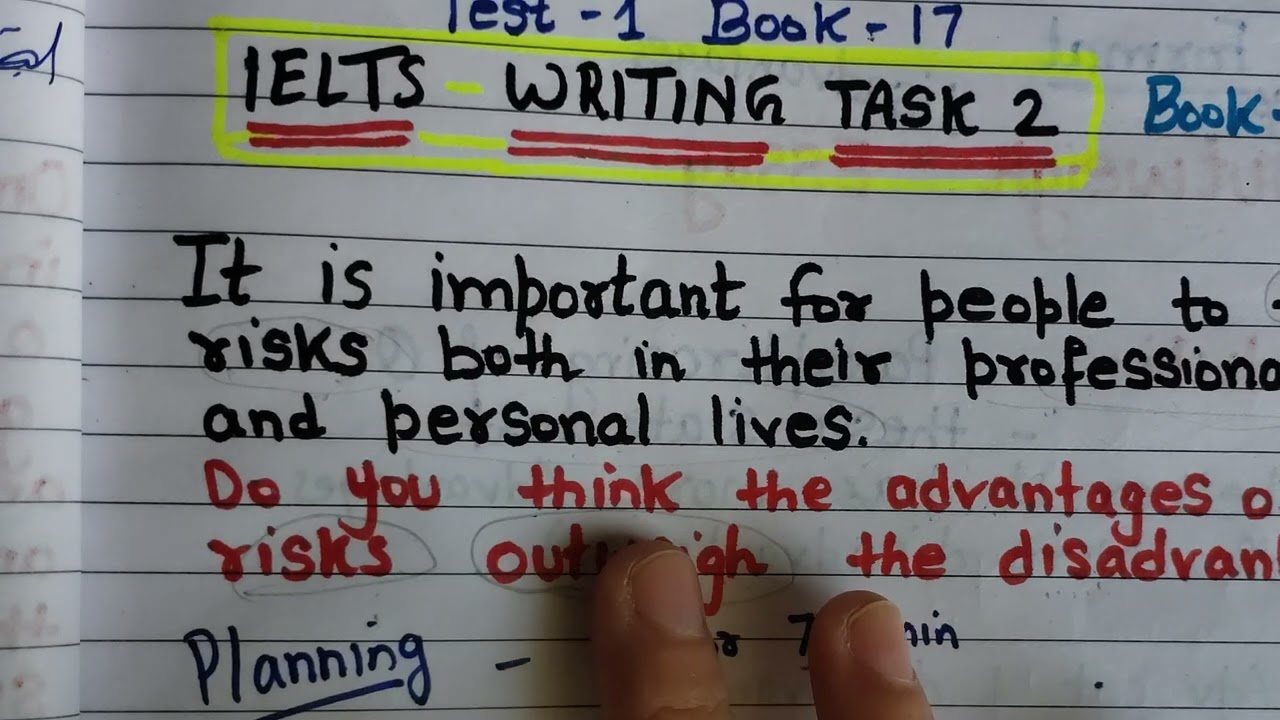 Test - 1 Book - 17
IELTS - WRITING TASK 2 Book -
It is important for people to
risks both in their professiona
and personal lives.
Do you think the advantages o
risks the disadvant
Planning - min